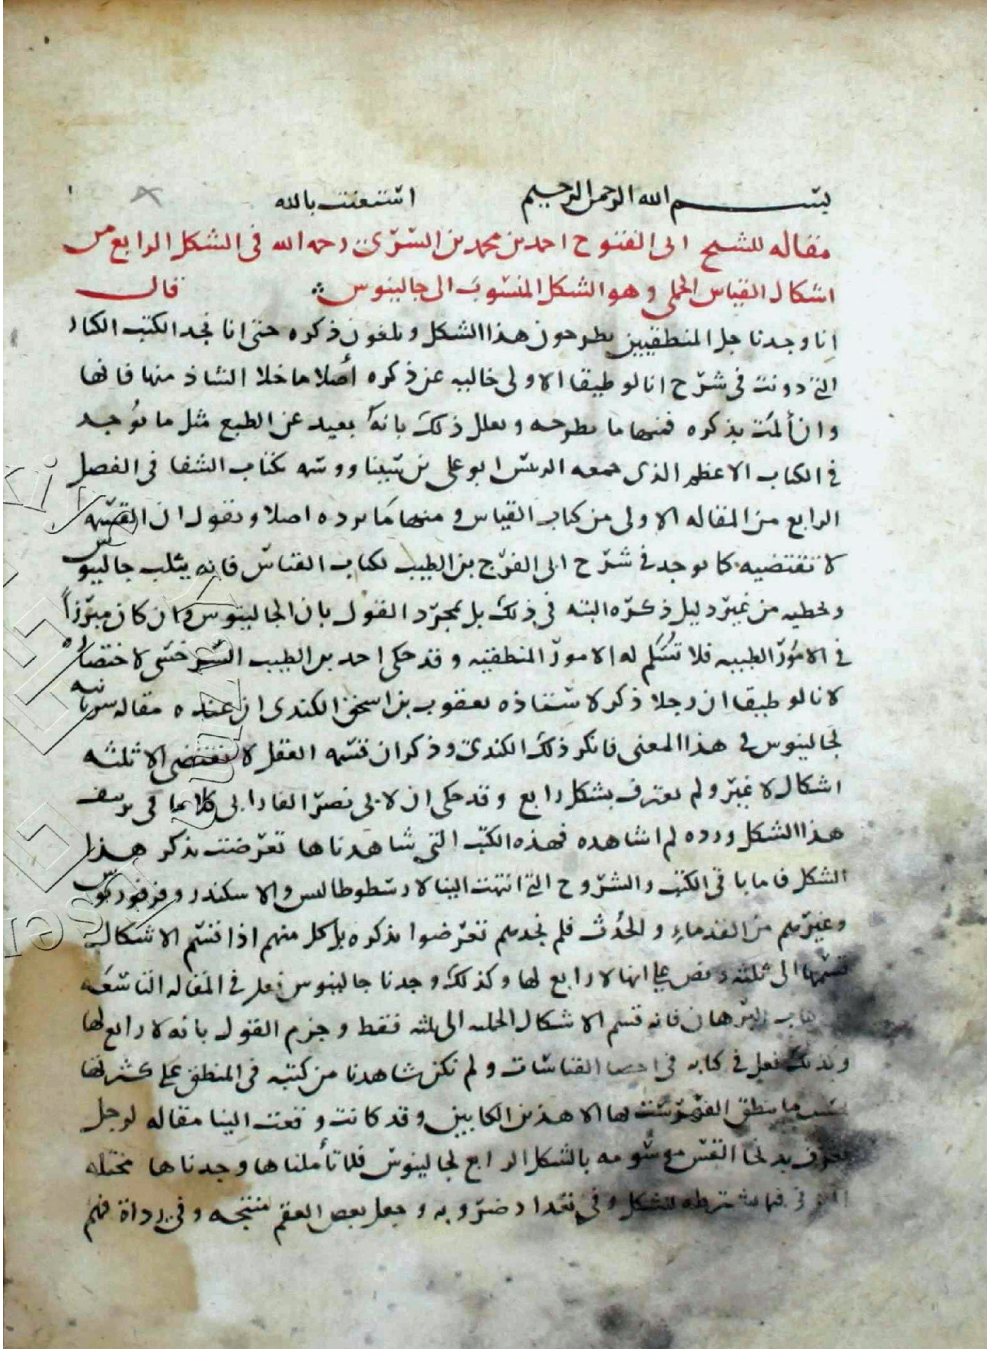 بسم الله الرحمن الرحيم استعنت بالله
مقاله للشيخ ابى الفتوح احمد بن محمد بن السرى رحمه الله فى الشكل الرابع من
اشكال القياس الحملى وهو الشكل المنسوب الى جالينوس قال
انا وجدنا جل المنطقيين يطرحون هذا الشكل ويلغون ذكره حتى انا نجد الكتب الكبار
التى دونت فى شرح انالوطيقا الاولى خاليه عن ذكره أصلا ما خلا الشاذ منها فانها
وان ألمت بذكره فمنها ما يطرحه ويعلل ذلك بانه بعيد عن الطبع مثل ما يوجد
فى الكتاب الاعظم الذى جمعه الرئيس ابو على بن سينا ووسمه بكتاب الشفا فى الفصل
الرابع من المقاله الاولى من كتاب القياس ومنها ما يرده اصلا ويقول ان القسمه
لا تقتضيه كما يوجد فى شرح ابى الفرج بن الطيب لكتاب القياس فانه يثلب جالينوس
ويخطيه من غير دليل ذكره البته فى ذلك بل بمجرد القول بان الجالينوس وان كان مبرزاً
فى الامور الطبيه فلا تسلم له الامور المنطقيه وقد حكى احمد بن الطيب السرخسى لاختصاره
لانالوطيقا ان رجلا ذكر لاستاذه يعقوب بن اسحق الكندى ان عنده مقاله سريانيه
لجالينوس فى هذا المعنى فانكر ذلك الكندى وذكر ان قسمه العقل لا تقتضى الا ثلثه
اشكال لا غير ولم يعترف بشكل رابع وقد حكى ان لابى نصر الفارابى كلاما فى تزييف
هذا الشكل ورده لم اشاهده فهذه الكتب التى شاهدناها تعرضت بذكر هذا
الشكل فاما باقى الكتب والشروح التى انتهت الينا لارسطوطالس والاسكندر وفرفوريوس
وغيرهم من القدماء والحدث فلم نجدهم تعرضوا بذكره بل كل منهم اذا قسم الاشكال
قسمها الى ثلثه ونص على انها لا رابع لها وكذلك وجدنا جالينوس فعل فى المقاله التاسعه
كتاب البرهان فانه قسم الاشكال الحمليه الى ثلثه فقط وجزم القول بانه لا رابع لها
وكذلك فعل فى كتابه فى احصا القياسات ولم نكن شاهدنا من كتبه فى المنطق على كثرتها
ما ينطق الفهرست لها الا هذين الكتابين وقد كانت وقعت الينا مقاله لرجل
يعرف القس موسومه بالشكل الرابع لجالينوس فلما تأملناها وجدناها مختله
فيما يشترطه للشكل وفى تعداد ضروبه وجعل بعض العقم منتجه وفى رداة فهم